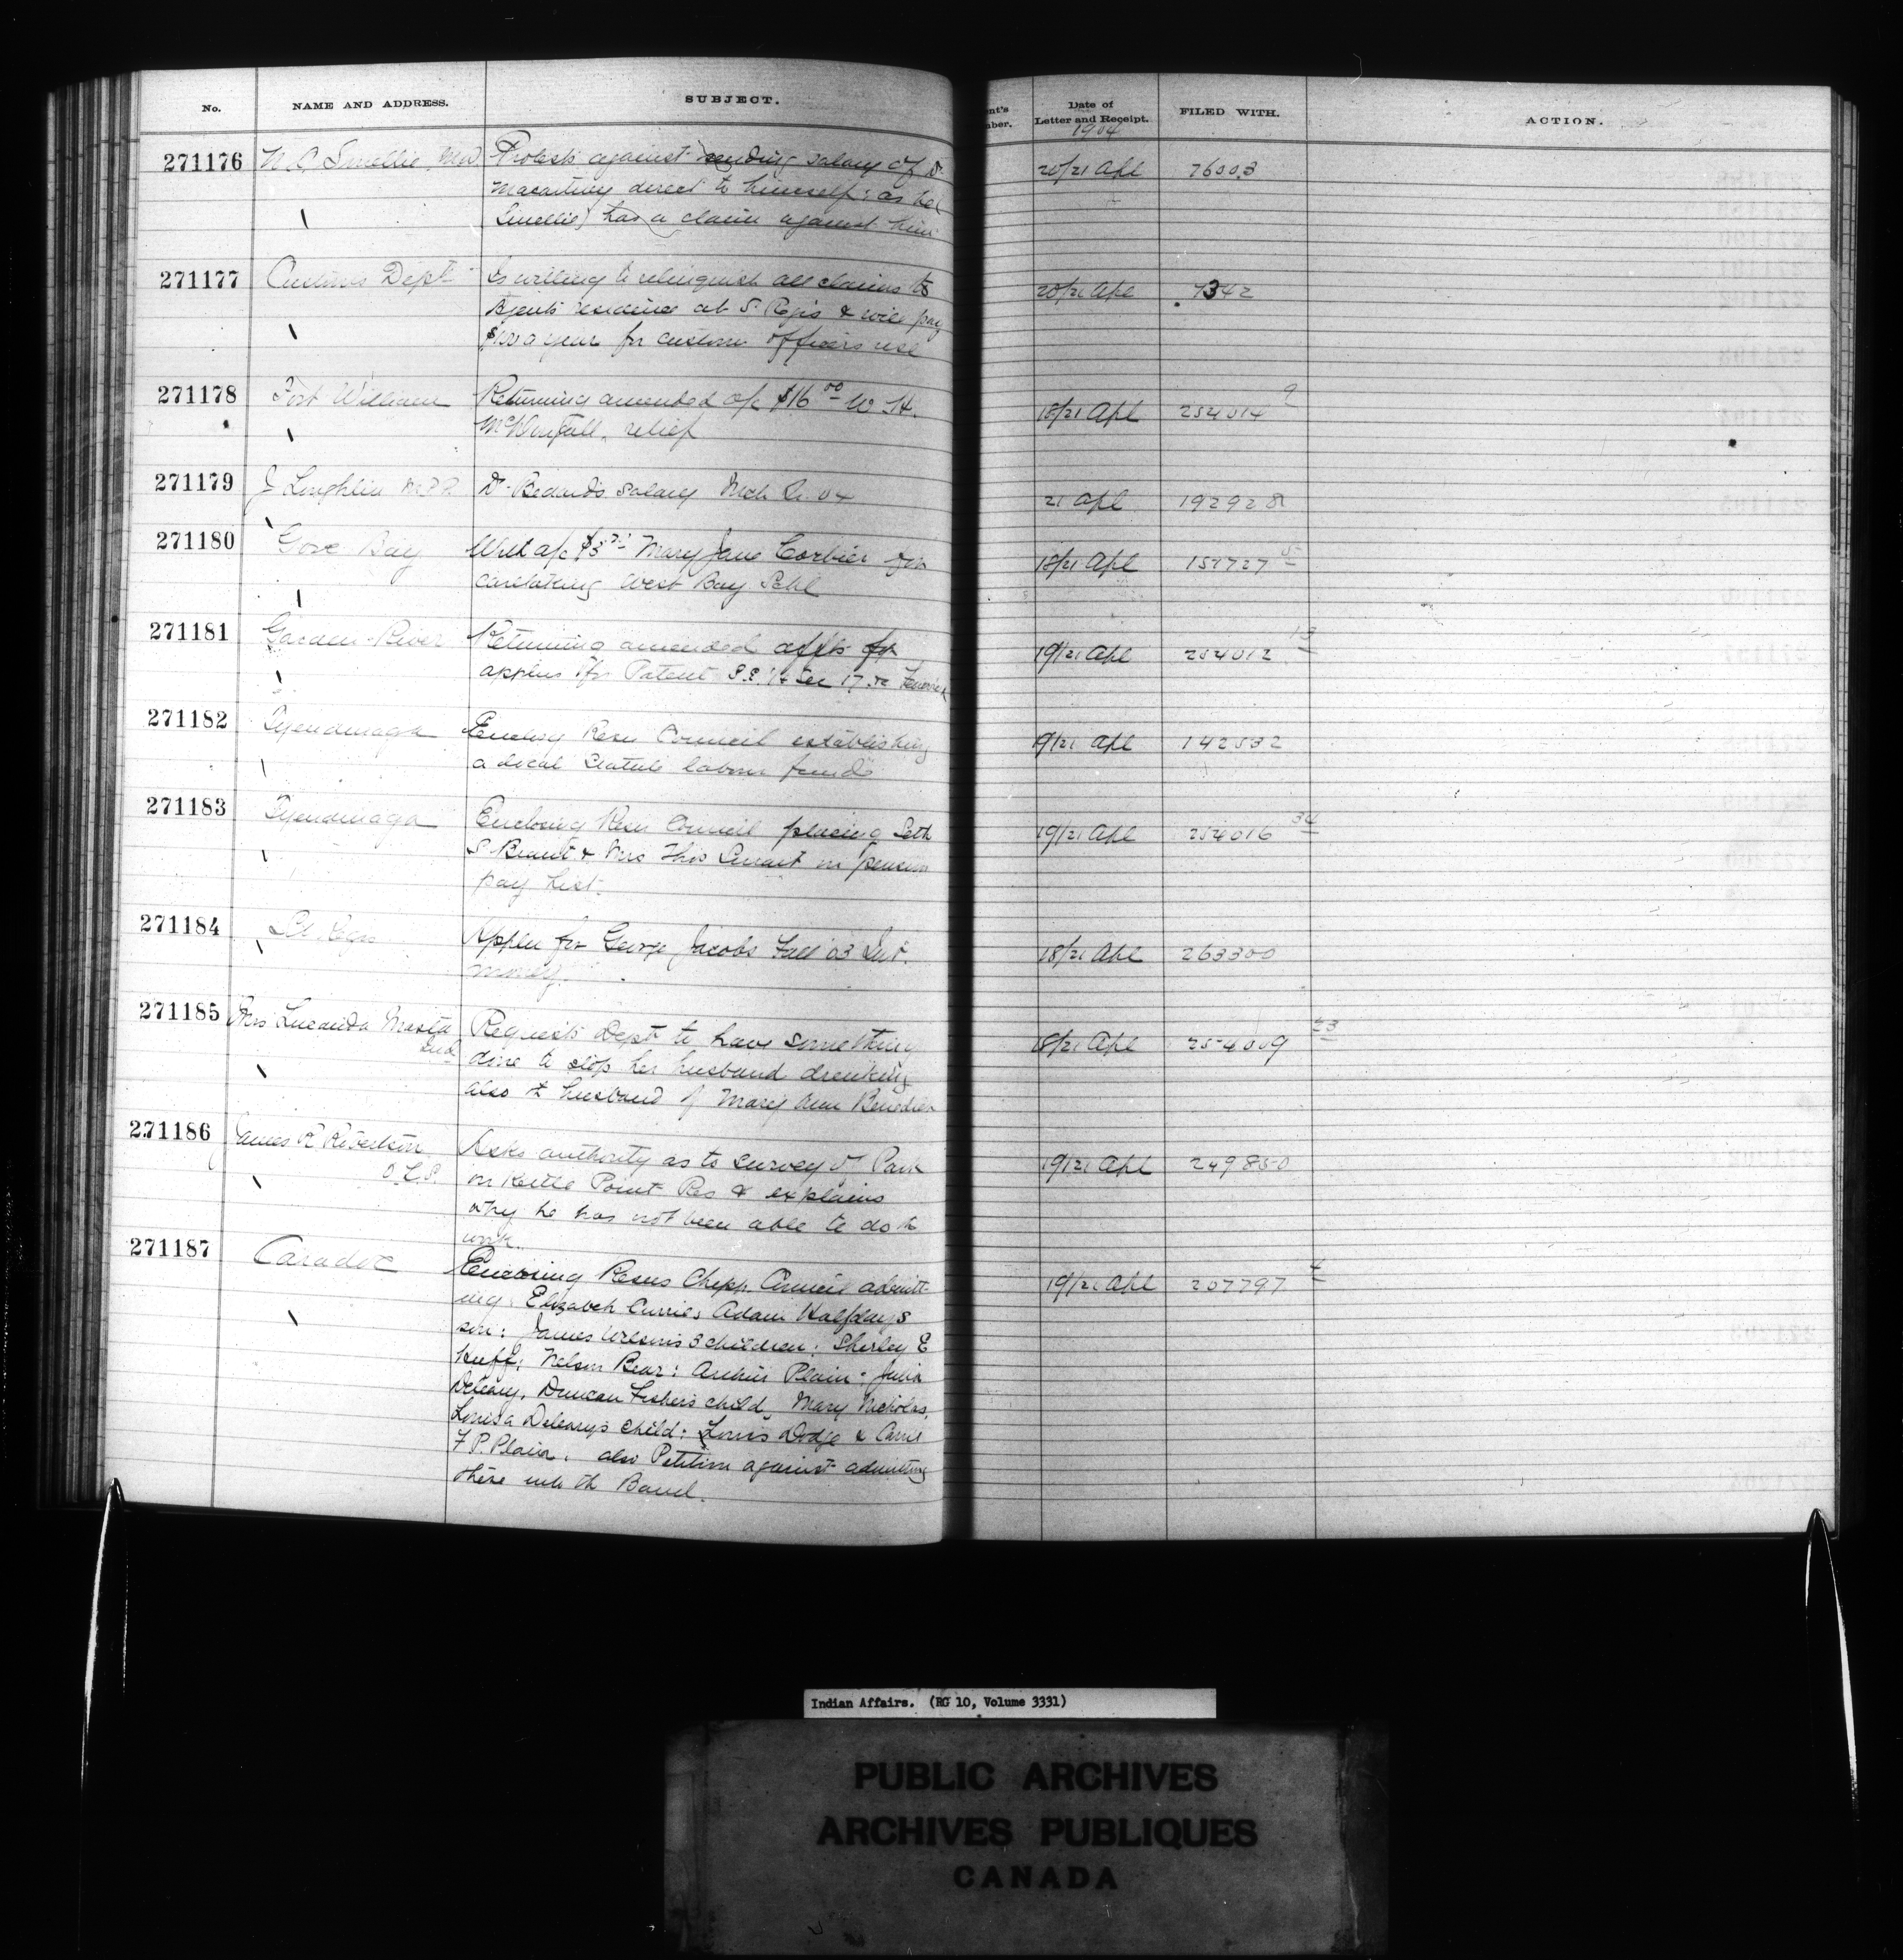 No.
NAME AND ADDRESS.
SUBJECT.
Date of
Letter and Receipt.
FILED WITH.
ACTION.
1904
271176
Smellie, MD
Protests against sending salary of Dr
direct to himself; as he (
Smellie) has a claim against him
20/21 Apl
76003
271177
Customs Dept
Is willing to relinquish all claims to
Agents residence at S. Regis & will pay
$100 a year for customs officers use
20/21 Apl
7342
271178
Fort William
Returning amended a/c $16.00 W. H.
relief
18/21 Apl
254014 9
271179
J Loughlin
Dr. Bedard's salary Mch Qr. 04
21 Apl
192928
271180
Gore Bay
a/c $3 Mary Jane Corbier for
caretaking West Bay Schl
18/21 Apl
157727
271181
Garden River
Returning amended affts for
appln for Patent S.E. 1/4 Sec 17
19/21 Apl
254012 13
271182
Tyendinaga
Enclosg Resn Council establishing
a local Statute labour fund
19/21 Apl
142532
271183
Tyendinaga
Enclosing Resn Council placing Seth
S. Brant & Mrs Thos Smart on pension
pay list.
19/21 Apl
254016 34
271184
St. Regis
Appln for George Jacobs Fall '03 Int.
money.
18/21 Apl
263300
271185
Mrs Lucinda
Requests Dept to have something
done to stop her husband drinking
also the husband of Mary Ann Benedict
18/21 Apl
254009 23
271186
James R Robertson
O.L.S.
Asks authority as to survey of Park
on Kettle Point Res & explains
why he has not been able to do the
work.
19/21 Apl
249850
271187
Caradoc
Enclosing Resns Chipp. Council admitt-
ing: Elizabeth Currie, Adam Halfdays
son: James Wilson's 3 children: Shirley E
Huff: Nelson Bear: Arthur Plain: Julia
Deleary, Duncan Fishers child, Mary Nicholas,
Louisa Deleary's child: Louis Dodge & Carrie
F. P. Plain, also Petition against admitting
these into the Band.
19/21 Apl
207797 4
Indian Affairs. (RG 10, Volume 3331)
PUBLIC ARCHIVES
ARCHIVES PUBLIQUES
CANADA